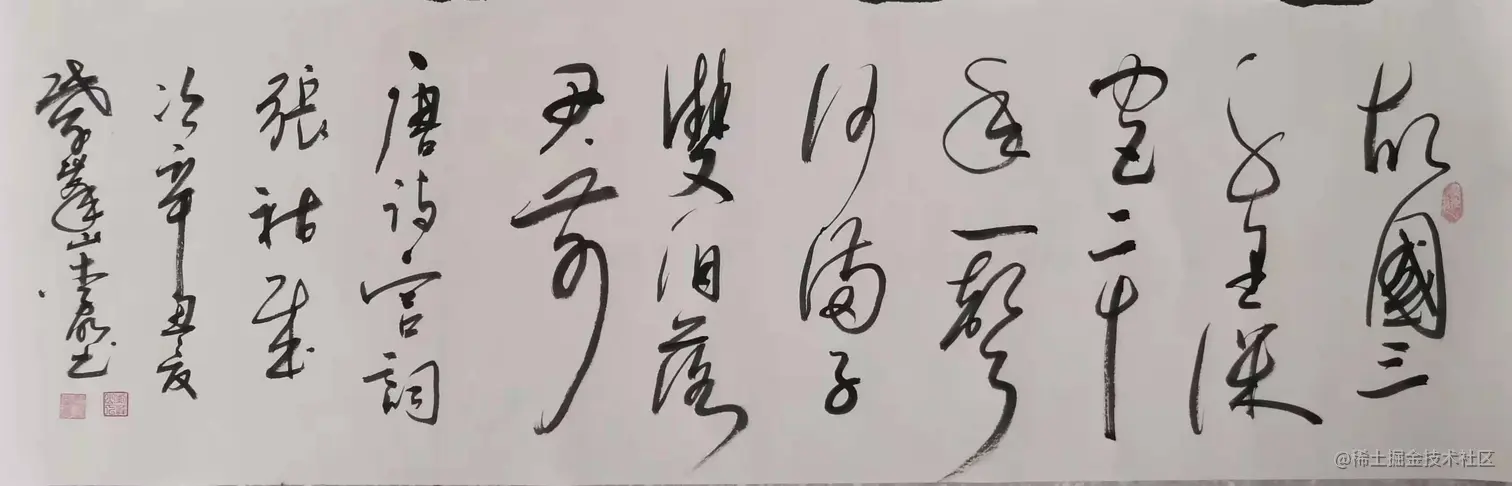 故國三
千里深
宮二十
年一聲
何滿子
雙泪落
君前
唐詩宮詞
張祜歲
次辛丑夏
紫蓬山书
@稀土掘金技术社区